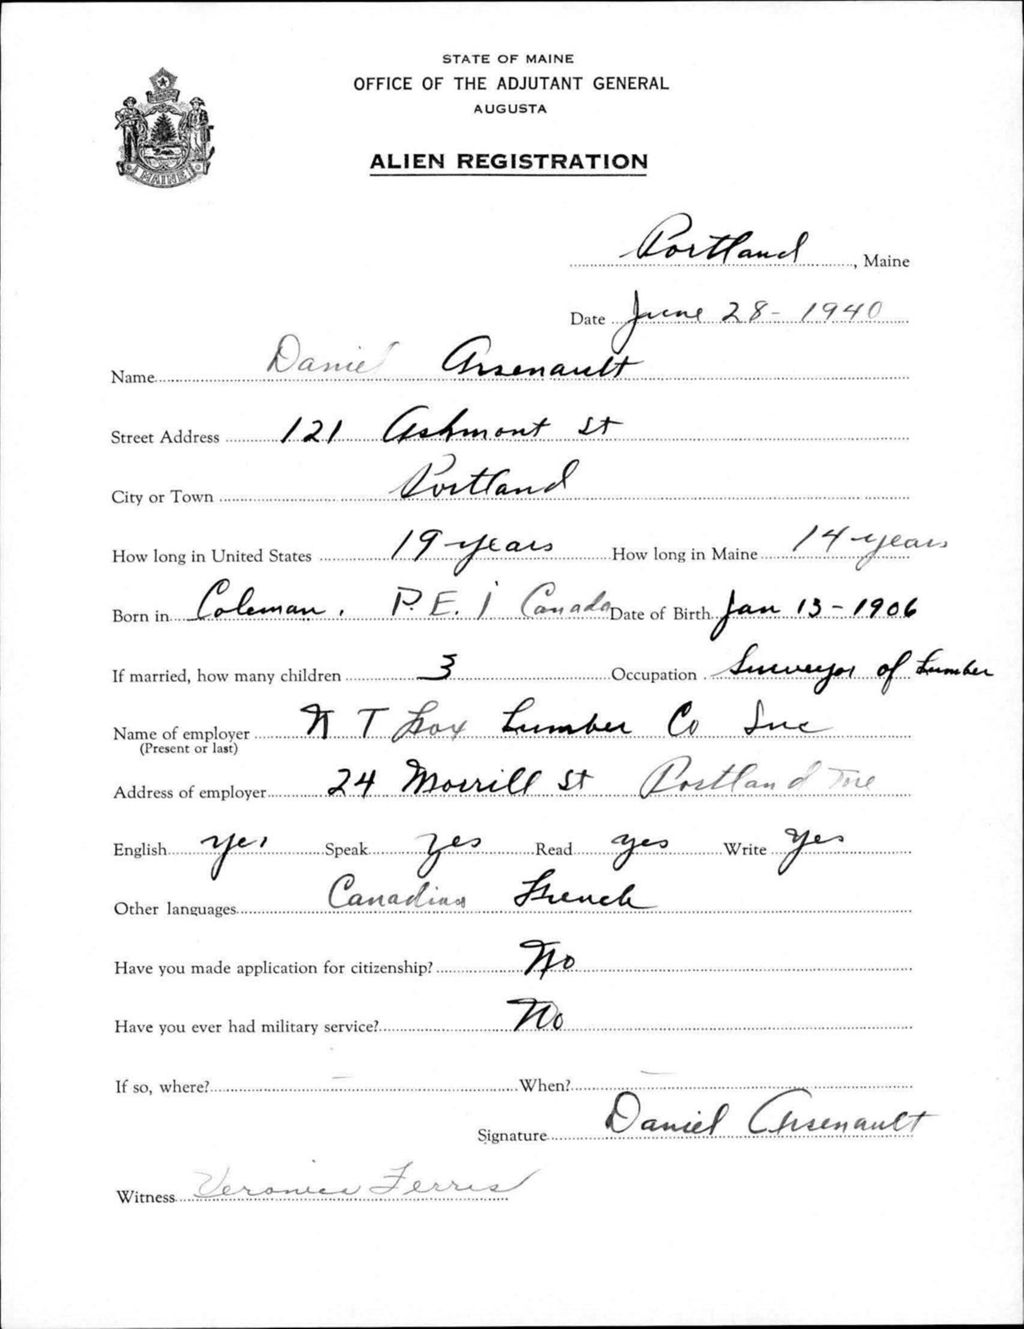 STATE OF MAINE
OFFICE OF THE ADJUTANT GENERAL
AUGUSTA
ALIEN REGISTRATION
MAINE
Portland, Maine
Date June 28 - 1940
Name Daniel Arsenault
Street Address 121 Ashmont St
City or Town Portland
How long in United States 19 years How long in Maine 14 years
Born in Coleman. P.E.I Canada Date of Birth Jan 13 - 1906
If married, how many children 3 Occupation Surveyor of Lumber
Name of employer N T Fox Lumber Co Inc
(Present or last)
Address of employer 24 Morrill St Portland Me
English Yes Speak Yes Read yes Write Yes
Other languages Canadian French
Have you made application for citizenship? No
Have you ever had military service? No
If so, where? — When? —
Signature Daniel Arsenault
Witness Veronica Ferris